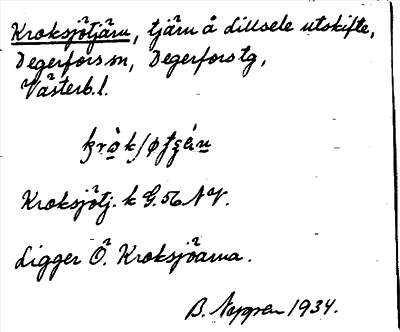 Kroksjötjärn, tjärn å Lillsele utskifte,
Degerfors sn, Degerfors tg,
Västerb. l.
Kroksjötj. k G. 56 NV.
Ligger Ö. Kroksjöarna.
B. Nygren 1934.